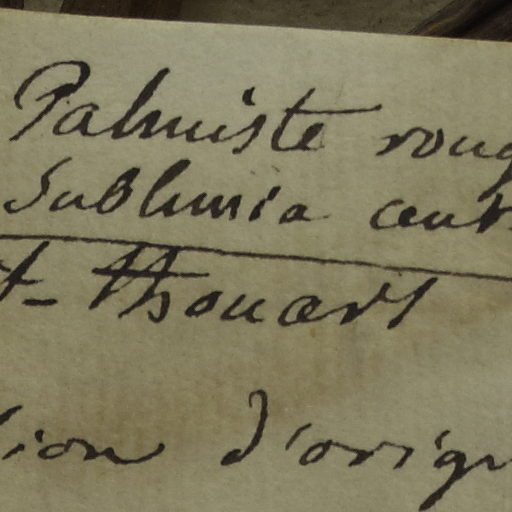 Palmiste roug
Sublimia cent
t- thouars
ion d'origi